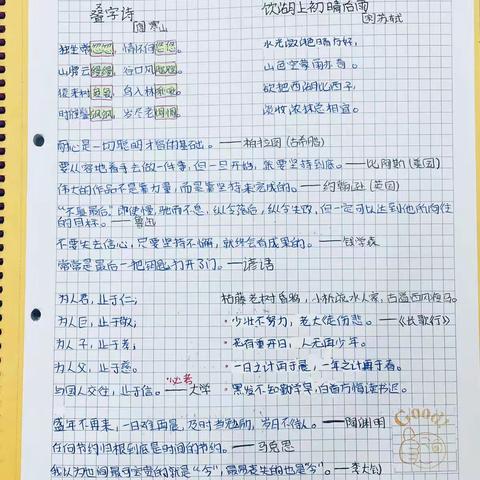 叠字诗
[唐]寒山
独坐常忽忽，情怀何悠悠。
山腰云缦缦，谷口风飕飕。
猿来树袅袅，鸟入林啾啾。
时催鬓飒飒，岁尽老惆惆。
饮湖上初晴后雨
[宋]苏轼
水光潋滟晴方好，
山色空蒙雨亦奇。
欲把西湖比西子，
淡妆浓抹总相宜。
耐心是一切聪明才智的基础。——柏拉图(古希腊)
要从容地着手去做一件事，但一旦开始，就要坚持到底。——比阿斯(美国)
伟大的作品不是靠力量，而是靠坚持来完成的。——约翰逊(英国)
“不耻最后”即使慢，驰而不息，纵令落后，纵令失败，但一定可以达到他所向往
的目标。——鲁迅
不要失去信心，只要坚持不懈，就终会有成果的。——钱学森
常常是最后一把钥匙打开了门。——谚语
为人君，止于仁；
为人臣，止于敬；
为人子，止于孝；
为人父，止于慈。
与国人交往，止于信。——大学
必考
枯藤老树昏鸦，小桥流水人家，古道西风瘦马。
·少壮不努力，老大徒伤悲。——《长歌行》
·花有重开日，人无再少年。
·一日之计在于晨，一年之计在于春。
·黑发不知勤学早，白首方悔读书迟。
盛年不再来，一日难再晨，及时当勉励，岁月不待人。——陶渊明
任何节约归根到底是时间的节约。——马克思
我认为世间最可宝贵的就是“今”，最易丧失的也是“今”。——李大钊
Good!